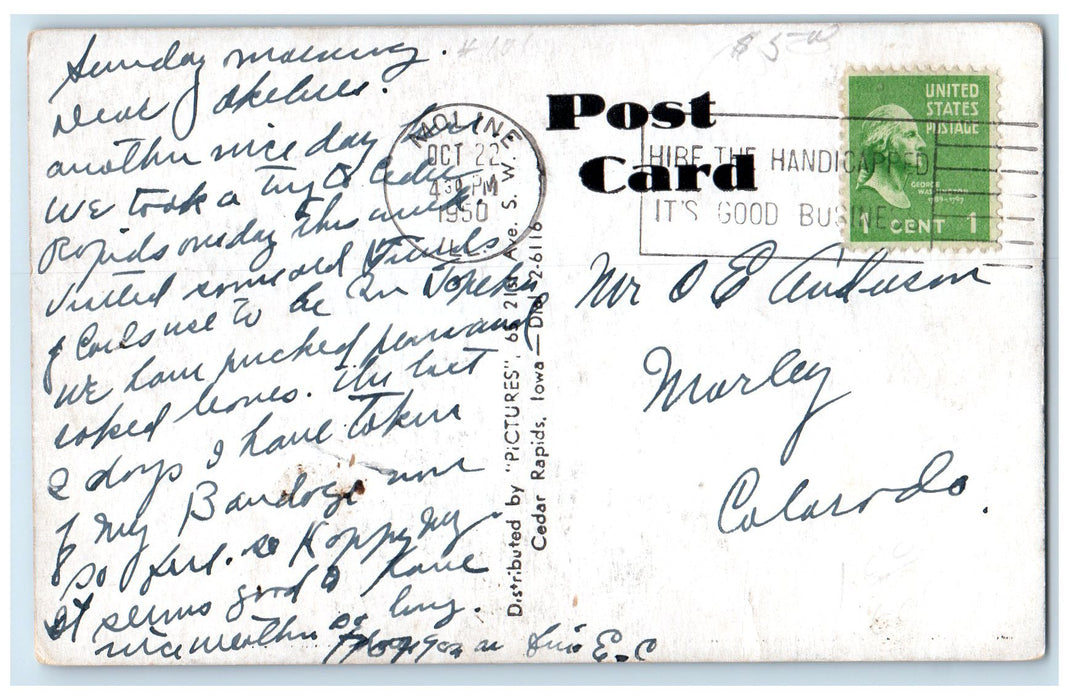 Sunday morning.
Dear
another nice day here
we took a trip to Cedar
Rapids one day this week.
visited some old friends.
& Earls use to be in Topeka
we have picked
leaves. The last
2 days I have taken
off my Bandage now
so feel so Happy
It seems good to have
nice weather so long.
Hope you are E.C
# 101
$ 5.00
Post
Card
MOLINE
OCT 22
4 30 PM
1950
ILL.
HIRE THE HANDICAPPED
IT'S GOOD BUSINE
UNITED
STATES
POSTAGE
GEORGE
WASHINGTON
1789-1797
1 CENT 1
Mr O E Anderson
Morley
Colorado.
Distributed by "PiCTURES", 65 21st Ave. S. W.
Cedar Rapids, Iowa — Dial 2-6116